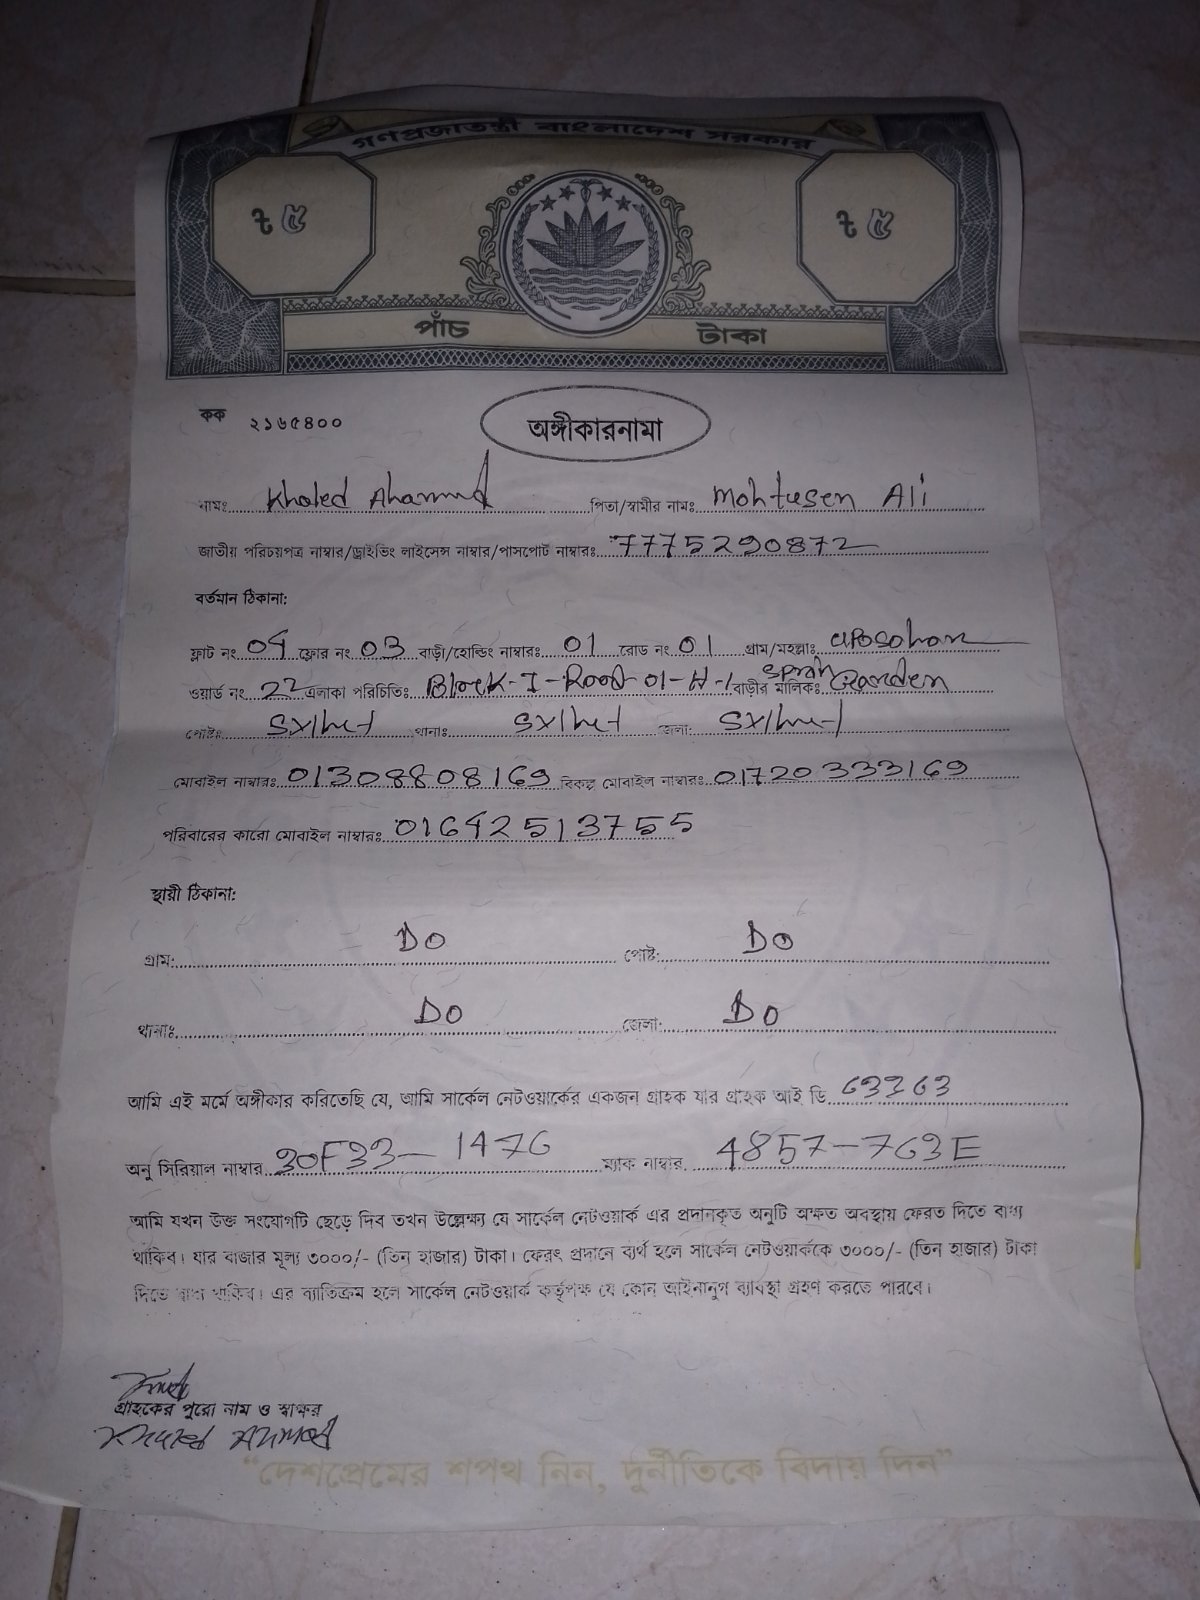 গণপ্রজাতন্ত্রী বাংলাদেশ সরকার
৳ ৫ ৳ ৫
পাঁচ টাকা
কক ২১৬৫৪০০
অঙ্গীকারনামা
নামঃ Khaled Ahammed পিতা/স্বামীর নামঃ Mohtusen Ali
জাতীয় পরিচয়পত্র নাম্বার/ড্রাইভিং লাইসেন্স নাম্বার/পাসপোর্ট নাম্বারঃ 7775290872
বর্তমান ঠিকানা:
ফ্লাট নং 04 ফ্লোর নং 03 বাড়ী/হোল্ডিং নাম্বারঃ 01 রোড নং 01 গ্রাম/মহল্লাঃ UPosohor
ওয়ার্ড নং 22 এলাকা পরিচিতিঃ Block-I-Road-01-H-1 বাড়ীর মালিকঃ Garden
পোষ্টঃ Sylhet থানাঃ Sylhet জেলা: Sylhet
মোবাইল নাম্বারঃ 01308808169 বিকল্প মোবাইল নাম্বারঃ 01720333169
পরিবারের কারো মোবাইল নাম্বারঃ 01642513755
স্থায়ী ঠিকানা:
গ্রাম: DO পোষ্ট: DO
থানাঃ DO জেলা: DO
আমি এই মর্মে অঙ্গীকার করিতেছি যে, আমি সার্কেল নেটওয়ার্কের একজন গ্রাহক যার গ্রাহক আই ডি 63363
অনু সিরিয়াল নাম্বার 30F33-1476 ম্যাক নাম্বার 4857-763E
আমি যখন উক্ত সংযোগটি ছেড়ে দিব তখন উল্লেক্ষ্য যে সার্কেল নেটওয়ার্ক এর প্রদানকৃত অনুটি অক্ষত অবস্থায় ফেরত দিতে বাধ্য
থাকিব। যার বাজার মূল্য ৩০০০/- (তিন হাজার) টাকা। ফেরৎ প্রদানে ব্যর্থ হলে সার্কেল নেটওয়ার্ককে ৩০০০/- (তিন হাজার) টাকা
দিতে বাধ্য থাকিব। এর ব্যতিক্রম হলে সার্কেল নেটওয়ার্ক কর্তৃপক্ষ যে কোন আইনানুগ ব্যাবস্থা গ্রহণ করতে পারবে।
গ্রাহকের পুরো নাম ও স্বাক্ষর
Khaled Ahmed
“দেশপ্রেমের শপথ নিন, দুর্নীতিকে বিদায় দিন”